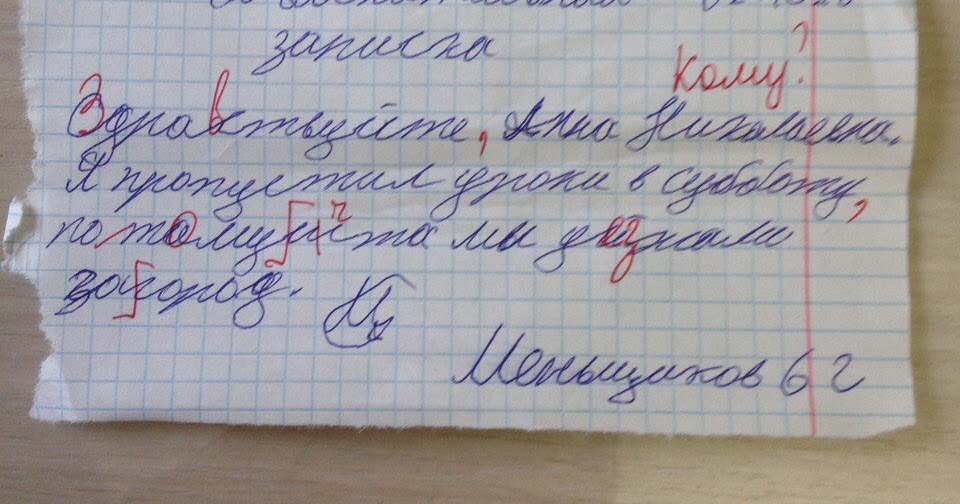 записка
Кому?
Здравствуйте, Анна Николаевна.
Я пропустил уроки в субботу,
потому что мы уезжали
загород.
Меньщиков 6 г